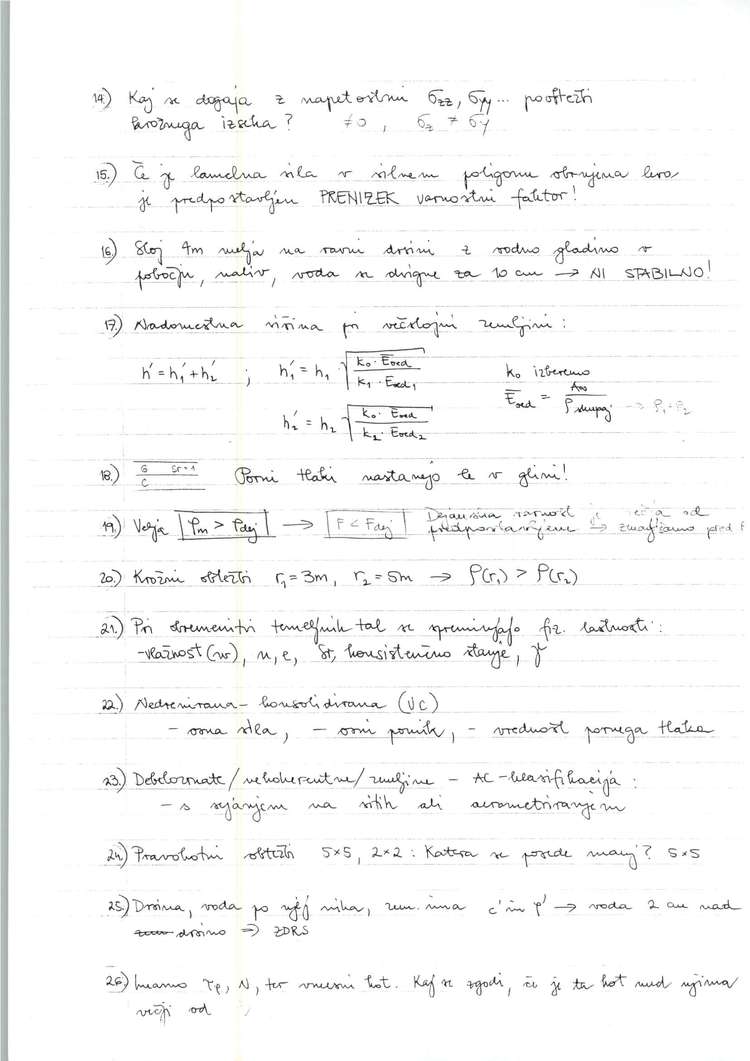 14.) Kaj se dogaja z napetostmi σzz, σyy ... po obtežbi
krožnega izseka? ≠0 , σz ≠ σy
15.) Če je lamelna sila v silnem poligonu obrnjena levo
je predpostavljen PRENIZEK varnostni faktor!
16.) Sloj 4m melja na ravni drsini z vodno gladino v
pobočju, naliv, voda se dvigne za 10 cm → NI STABILNO!
17.) Nadomestna višina pri večslojni zemljini:
h' = h1' + h2' ; h1' = h1 √(k0 · Eoed / k1 · Eoed1) k0 izberemo
h2' = h2 √(k0 · Eoed / k2 · Eoed2) Eoed = / ρskupaj → ρ1+ρ2
18.) G Sr=1 Porni tlaki nastanejo le v glini!
C
19.) Velja φm > φdej → F < Fdej Dejanska varnost je večja od
predpostavljene → zmanjšamo pred F
20.) Krožni obtežbi r1=3m, r2=5m → ρ(r1) > ρ(r2)
21.) Pri obremenitvi temeljnih tal se spreminjajo fiz. lastnosti:
- vlažnost (w), n, e, Sr, konsistenčno stanje, γ
22.) Nedrenirana - konsolidirana (UC)
- osna sila, - osni pomik, - vrednost pornega tlaka
23.) Debelozrnate / nekoherentne / zemljine - AC - klasifikacija:
- s sejanjem na sitih ali aerometriranjem
24.) Pravokotni obtežbi 5×5, 2×2 : Katera se posede manj? 5×5
25.) Drsina, voda po njej nika, zem. ima c' in φ' → voda 2 cm nad
drsino ⇒ ZDRS
26.) Imamo τp, N, ter vmesni kot. Kaj se zgodi, če je ta kot med njima
večji od